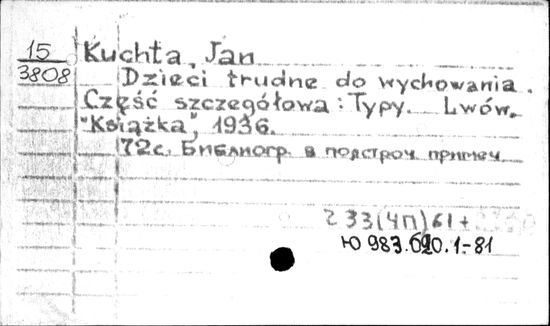 15
3808
Kuchta, Jan
Dzieci trudne do wychowania.
Część szczegółowa: Typy. Lwów.
"Książka", 1936.
72с. Библиогр. в подстроч. примеч.
2 33(4П)61+
Ю 983.690.1-81